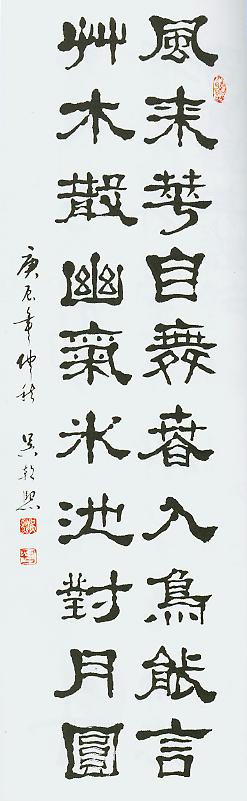 風来華自舞春入鳥能言
艸木散幽氣水池對月圓
庚辰年仲秋